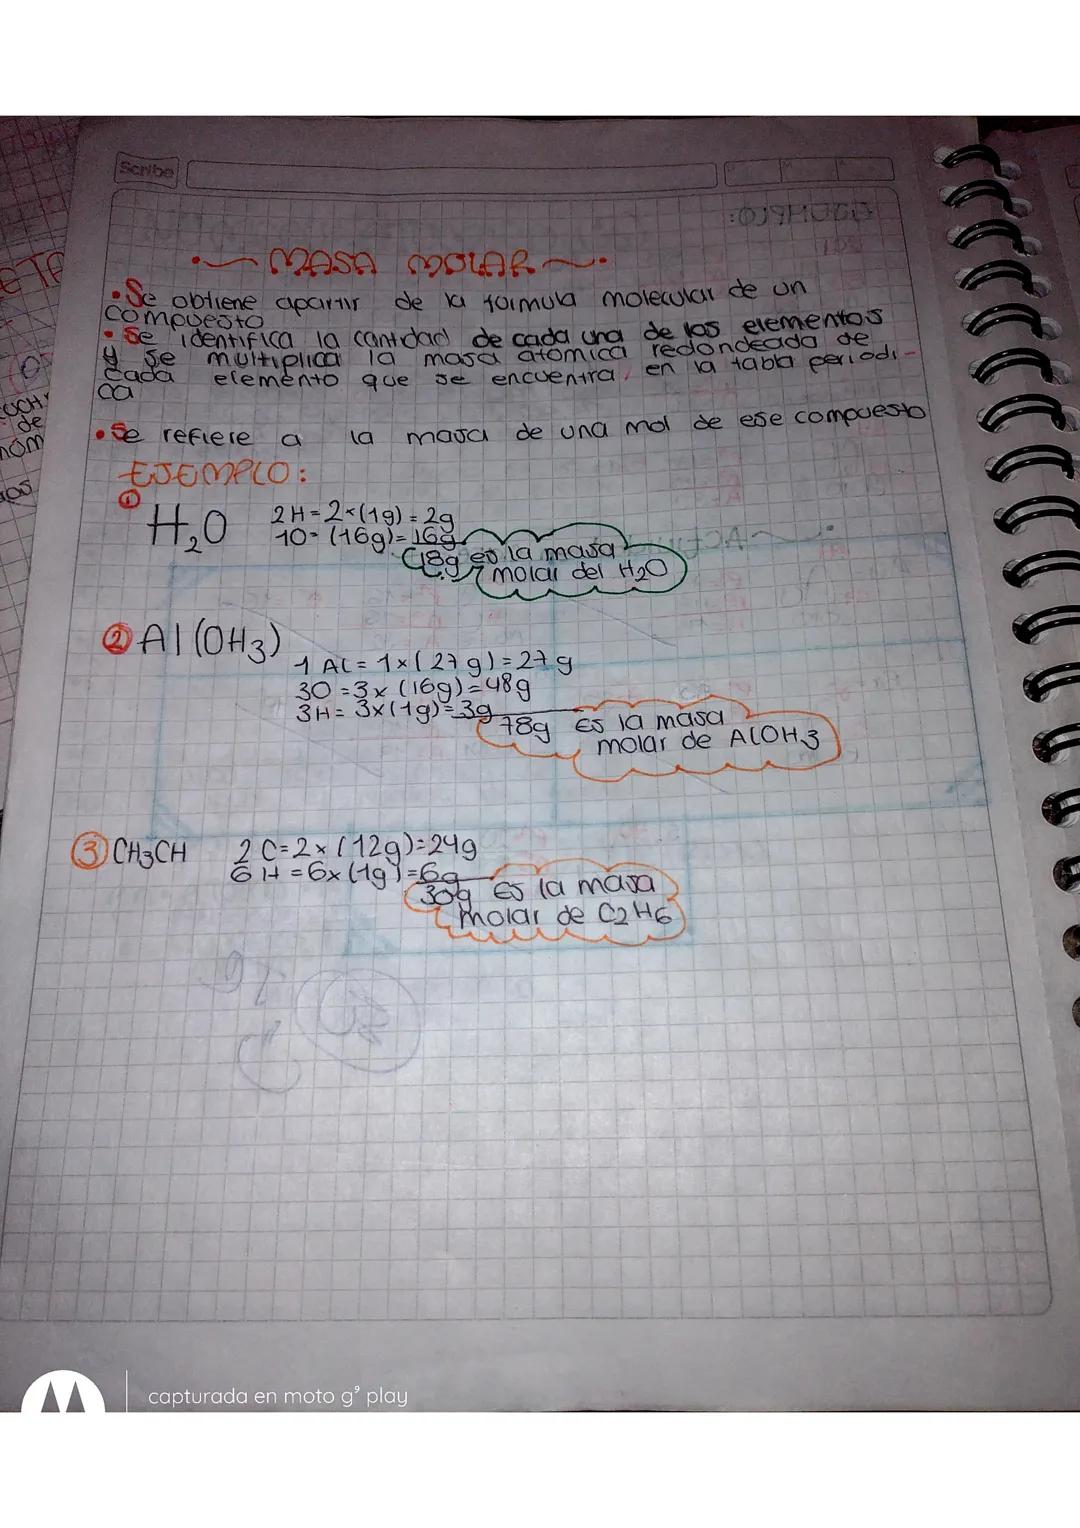 Scribe
MASA MOLAR
• Se obtiene apartir de la formula molecular de un
compuesto
• Se identifica la cantidad de cada una de los elementos
y se multiplica la masa atomica redondeada de
cada elemento que se encuentra en la tabla periodi-
ca
• Se refiere a la masa de una mol de ese compuesto
EJEMPLO:
① H₂O 2H=2×(1g)=2g
1O= (16g)=16g
18g es la masa
molar del H2O
② Al(OH3)
1 Al= 1×(27g)=27g
3O=3×(16g)=48g
3H=3×(1g)=3g
78g ES la masa
molar de AlOH3
③ CH3CH 2C=2×(12g)=24g
6H=6×(1g)=6g
30g ES la masa
molar de C2H6
capturada en moto g⁹ play